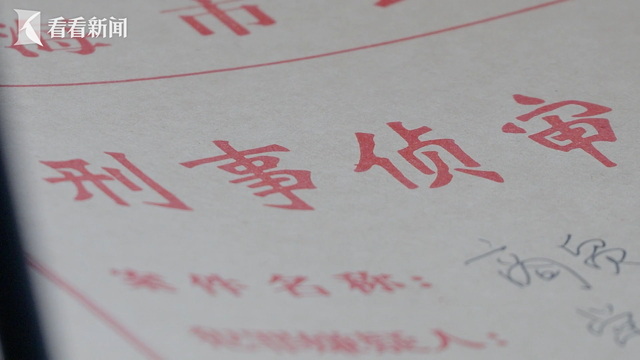 看看新闻
海市
刑事侦审
案件名称:
犯罪嫌疑人: